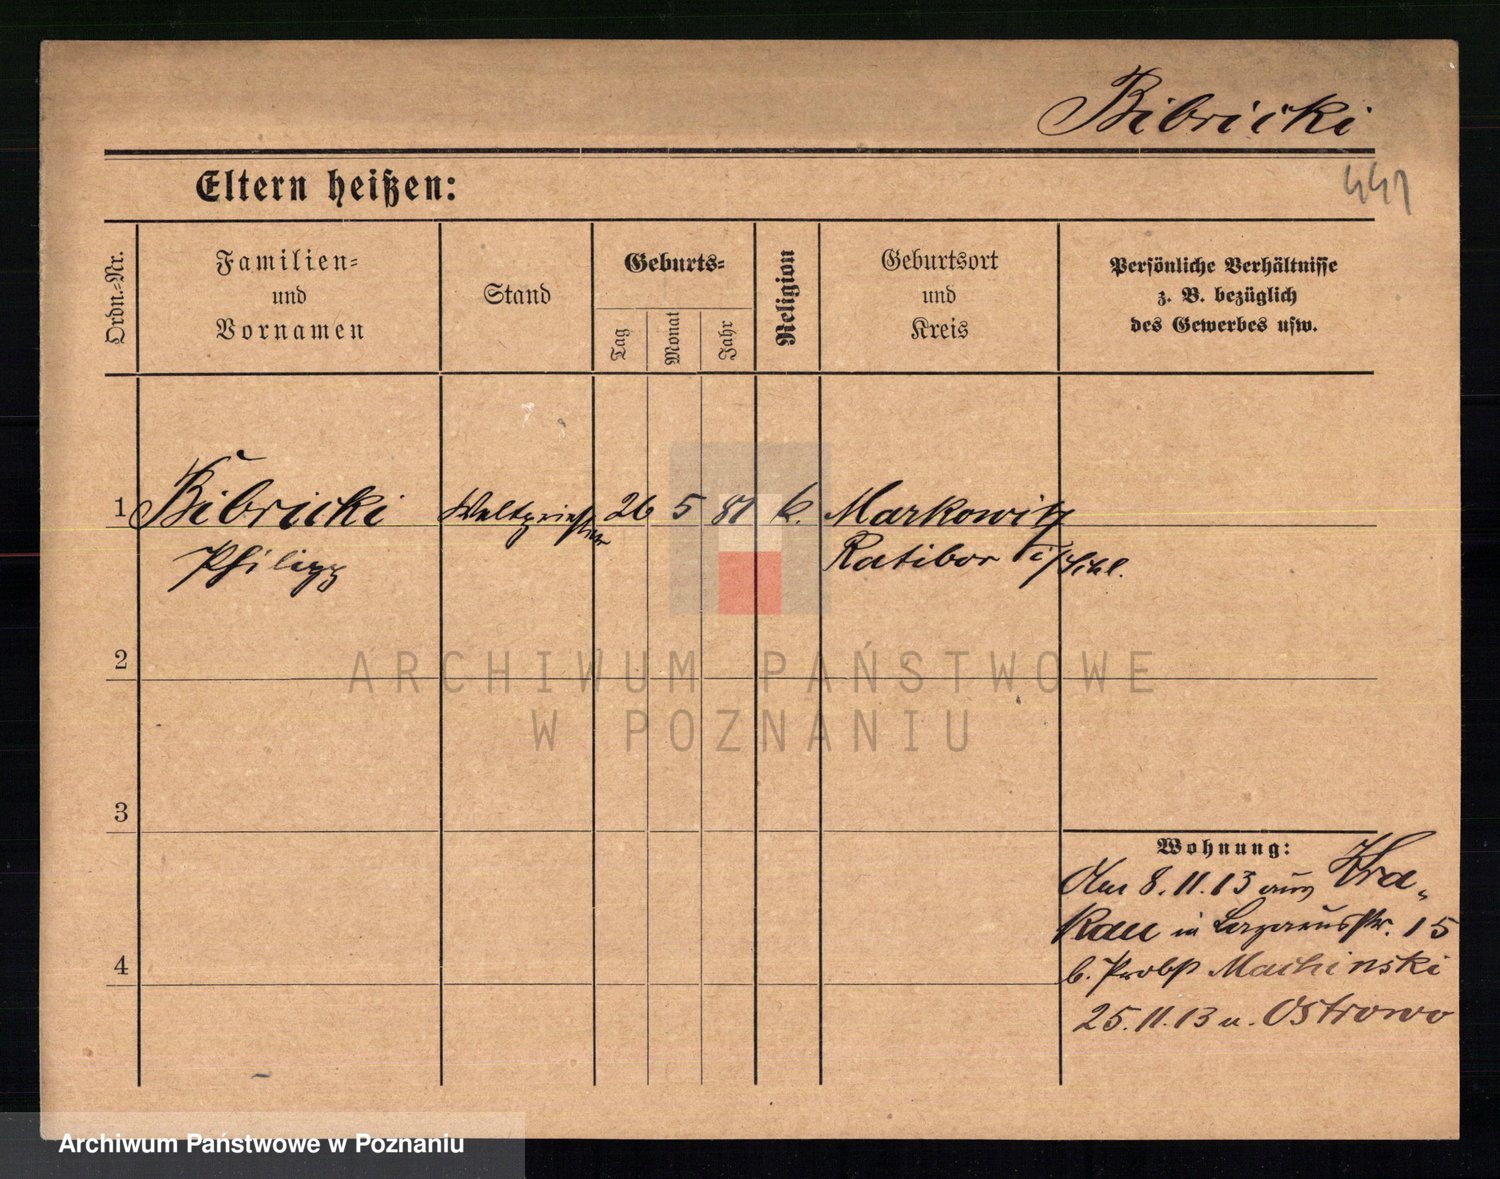 Bibricki
441
Eltern heißen:
Ordn.-Nr.
Familien-
und
Vornamen
Stand
Geburts-
Tag
Monat
Jahr
Religion
Geburtsort
und
Kreis
Persönliche Verhältnisse
z. B. bezüglich
des Gewerbes usw.
1 Bibricki Weltpriester 26 5 81 k. Markowitz
Philipp Ratibor i/Schl.
2
ARCHIWUM PAŃSTWOWE
W POZNANIU
3
Wohnung:
Am 8.11.13 aus Kra-
kau in Lazarusstr. 15
4
b. Probst Machinski
25.11.13 n. Ostrowo
Archiwum Państwowe w Poznaniu